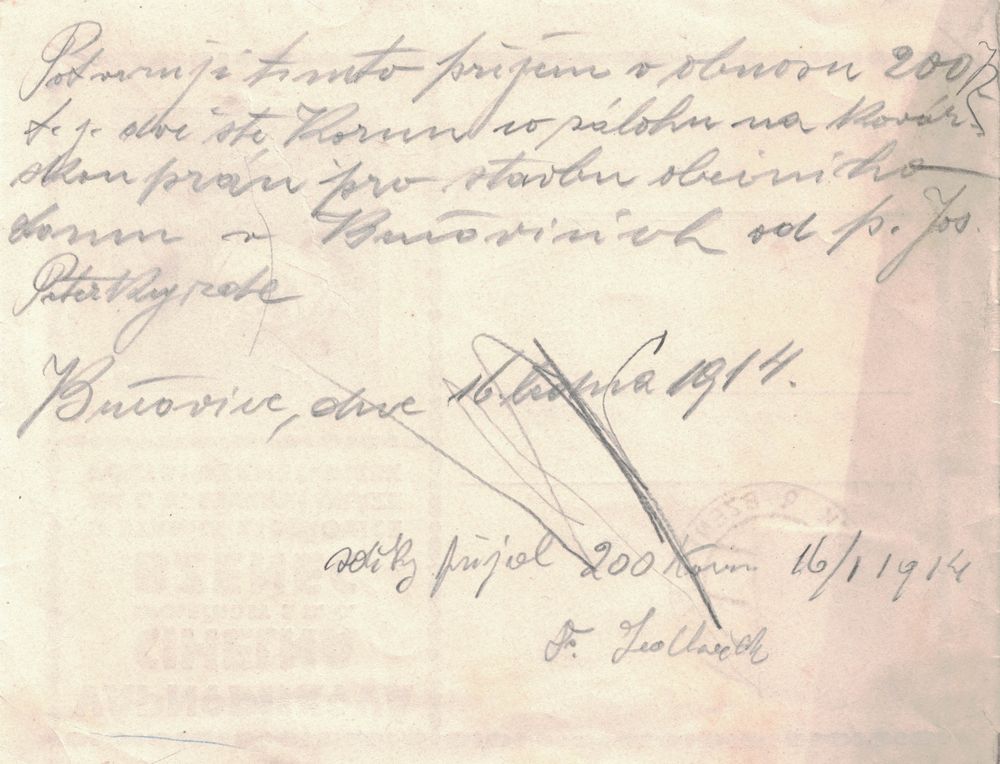 Potvrzuji tímto příjem v obnosu 200 K
t. j. dvě stě Korun co zálohu na Kovář-
skou práci pro stavbu obecního
domu v Bučovicích od p. Jos.
Peterky
Bučovice, dne 16. 1914.
díky přijal 200 Korun 16/1 1914
Fr. Sedláček